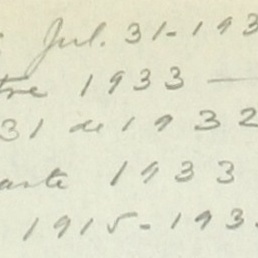 Jul. 31-193
tre 1933 —
31 de 1932
arte 1933
1915-193